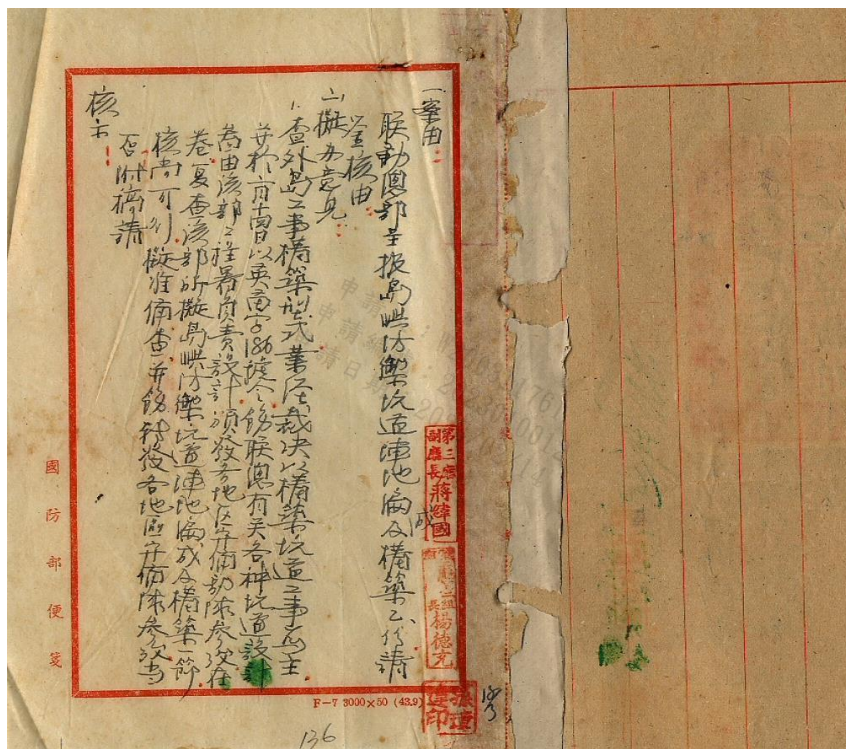 一、案由
联勤總部呈报島嶼防禦坑道陣地編成及構築乙份請
鉴核由
二、擬办意見
1.查外島工事構築型式業经裁决以構築坑道工事為主
并於
令飭联總有关各种坑道設計
着由該部工程署負責設計頒發各地区守備部隊参攷在
卷复查該部所擬島嶼防禦坑道陣地編成及構築一節
核尚可行擬准備查并飭轉發各地區守備部隊参攷当
否附稿請
核示
第三廳
副廳長
蔣緯國
組
長楊德
國防部便箋
F-7 3000×50 (43.9)
136